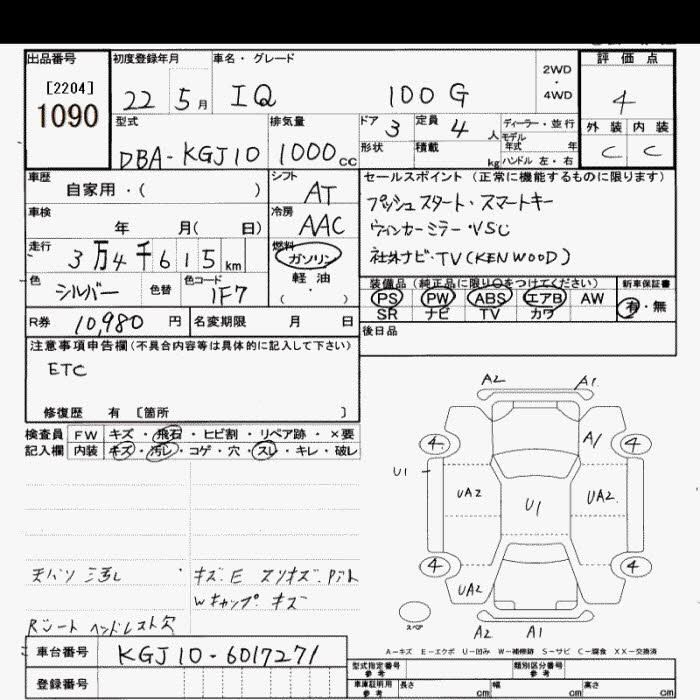 出品番号
[2204]
1090
初度登録年月
22 5月
車名・グレード
IQ 100G
2WD
・
4WD
評価点
4
外装 内装
C C
型式
DBA-KGJ10
排気量
1000cc
ドア 3
定員 4人
ディーラー・並行
モデル
年式 年
形状
積載 kg
ハンドル 左・右
車歴
自家用・( )
シフト
AT
セールスポイント (正常に機能するものに限ります)
プッシュスタート・スマートキー
ウィンカーミラー・VSC
社外ナビ・TV(KENWOOD)
車検
年 月( 日)
冷房
AAC
走行
3万4千615km
燃料
ガソリン
軽油
( ・ )
色
シルバー
色替
色コード
1F7
装備品 (純正品に限り○をつけてください)
新車保証書
PS PW ABS エアB AW
SR ナビ TV カワ
有・無
R券 10,980円
名変期限 月 日
後日品
注意事項申告欄(不具合内容等は具体的に記入して下さい)
ETC
修復歴 有 [箇所 ]
検査員 FW キズ・飛石・ヒビ割・リペア跡・×要
記入欄 内装 キズ・汚レ・コゲ・穴・スレ・キレ・破レ
A2 A1
4 A1 4
U1
UA2 U1 UA2
4 4
UA2
スペア
A2 A1
キズ.E スリキズ.
Wキャップ キズ
Rシート ヘッドレスト欠
A-キズ E-エクボ U-凹み W-補修跡 S-サビ C-腐食 XX-交換済
車台番号 KGJ10-6017271
登録番号
型式指定番号
参考
類別区分番号
参考
車庫証明用
参考
長さ cm 幅 cm 高さ cm